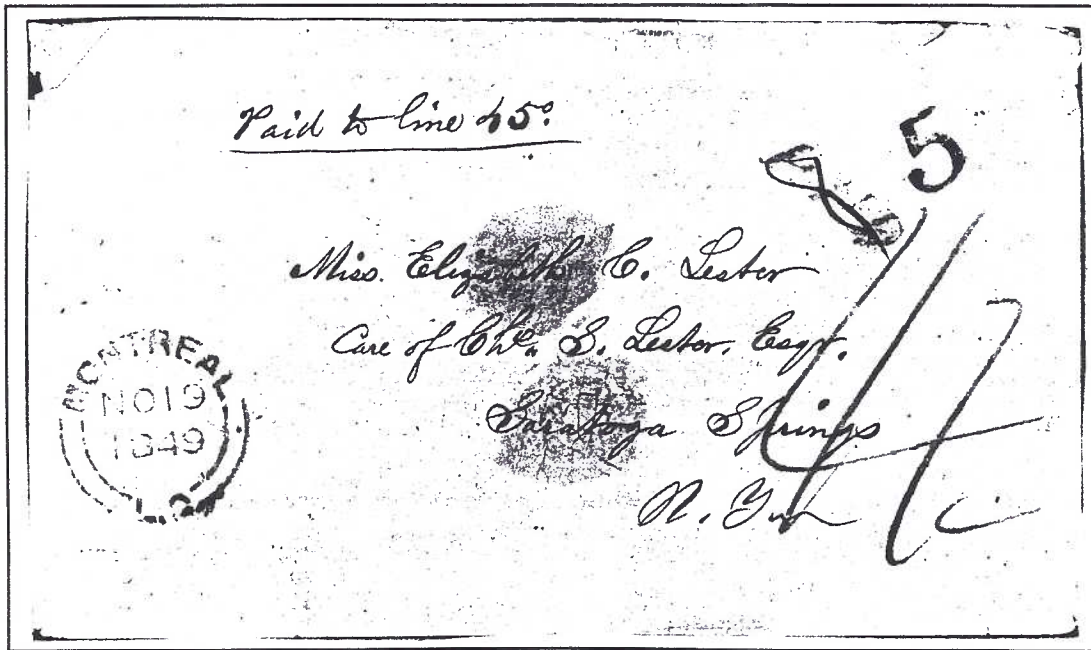 Paid to line 45º
5
Miss. Elizabeth C. Lester
Care of Chs. S. Lester. Esqr.
Saratoga Springs
N. York
MONTREAL
NO 19
1849
L.C.